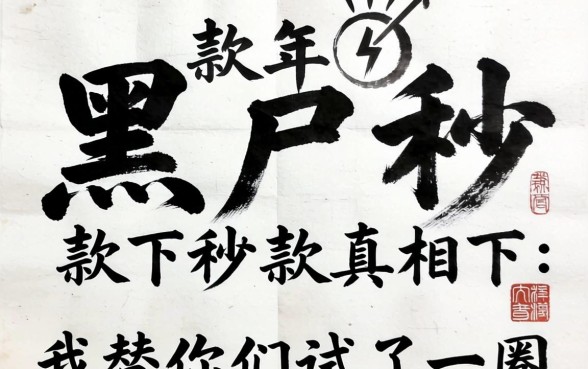 款年
黑户秒
款下秒款真相下：
我替你们试了一圈